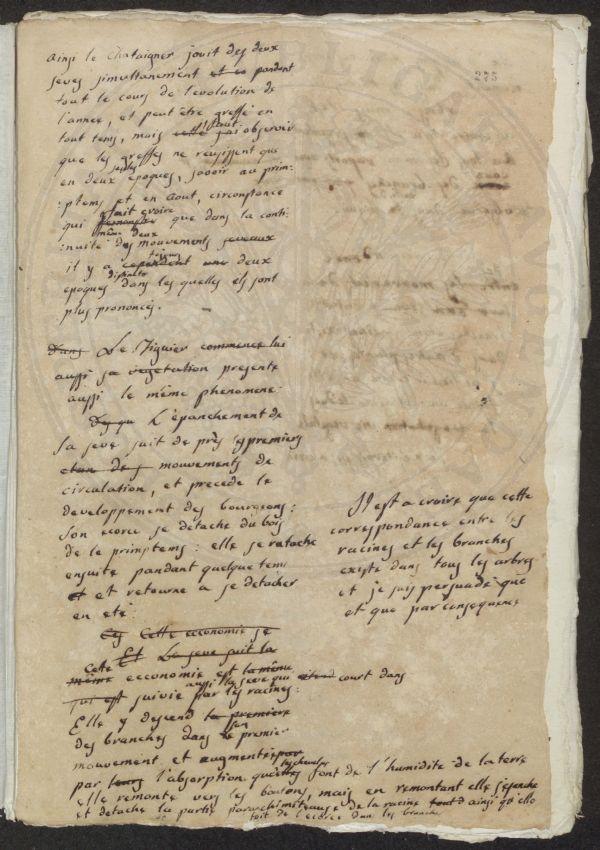 275
ainsi le Chataigner jouit des deux
seves simultanement et en pandant
tout le cours de l'evolution de
l'annee, et peut être greffé en
tout tems, mais cette j'ai observé
que les greffes ne reussissent que
en deux seules epoques, savoir au prim-
:ptems et en Aout, circonstance
qui fait croire que dans la conti-
:nuité même des mouvements seveaux
il y a cependent une deux
epoques distinctes dans les quelles ils sont
plus prononcés.
Dans Le Figuier commence lui
aussi sa vegetation presente
aussi le même phenomene.
L'épanchement de
sa seve suit de près les premiers
mouvements de
circulation, et precede le
developpement des bourgeons:
son ecorce se detache du bois
de le primptems: elle se ratache
ensuite pandant quelque tems
et et retourne a se detacher
en eté.
Cette economie se
Et La seve suit la
Cette même economie est la même
qui est suivie aussi par les racines:
la seve qui court dans
Elle y descend la premiere
des branches dans son premier
mouvement, et augmentée par
par leurs l'absorption que les chevelus font de l'humidité de la terre
elle remonte vers les boutons, mais en remontant elle s'epanche
et detache la partie de la racine tout ainsi qu'elle
fait de l'ecorce dans les branches
Il est a croire que cette
correspondance entre les
racines et les branches
existe dans tous les arbres
et je suis persuadé que
et que par consequence